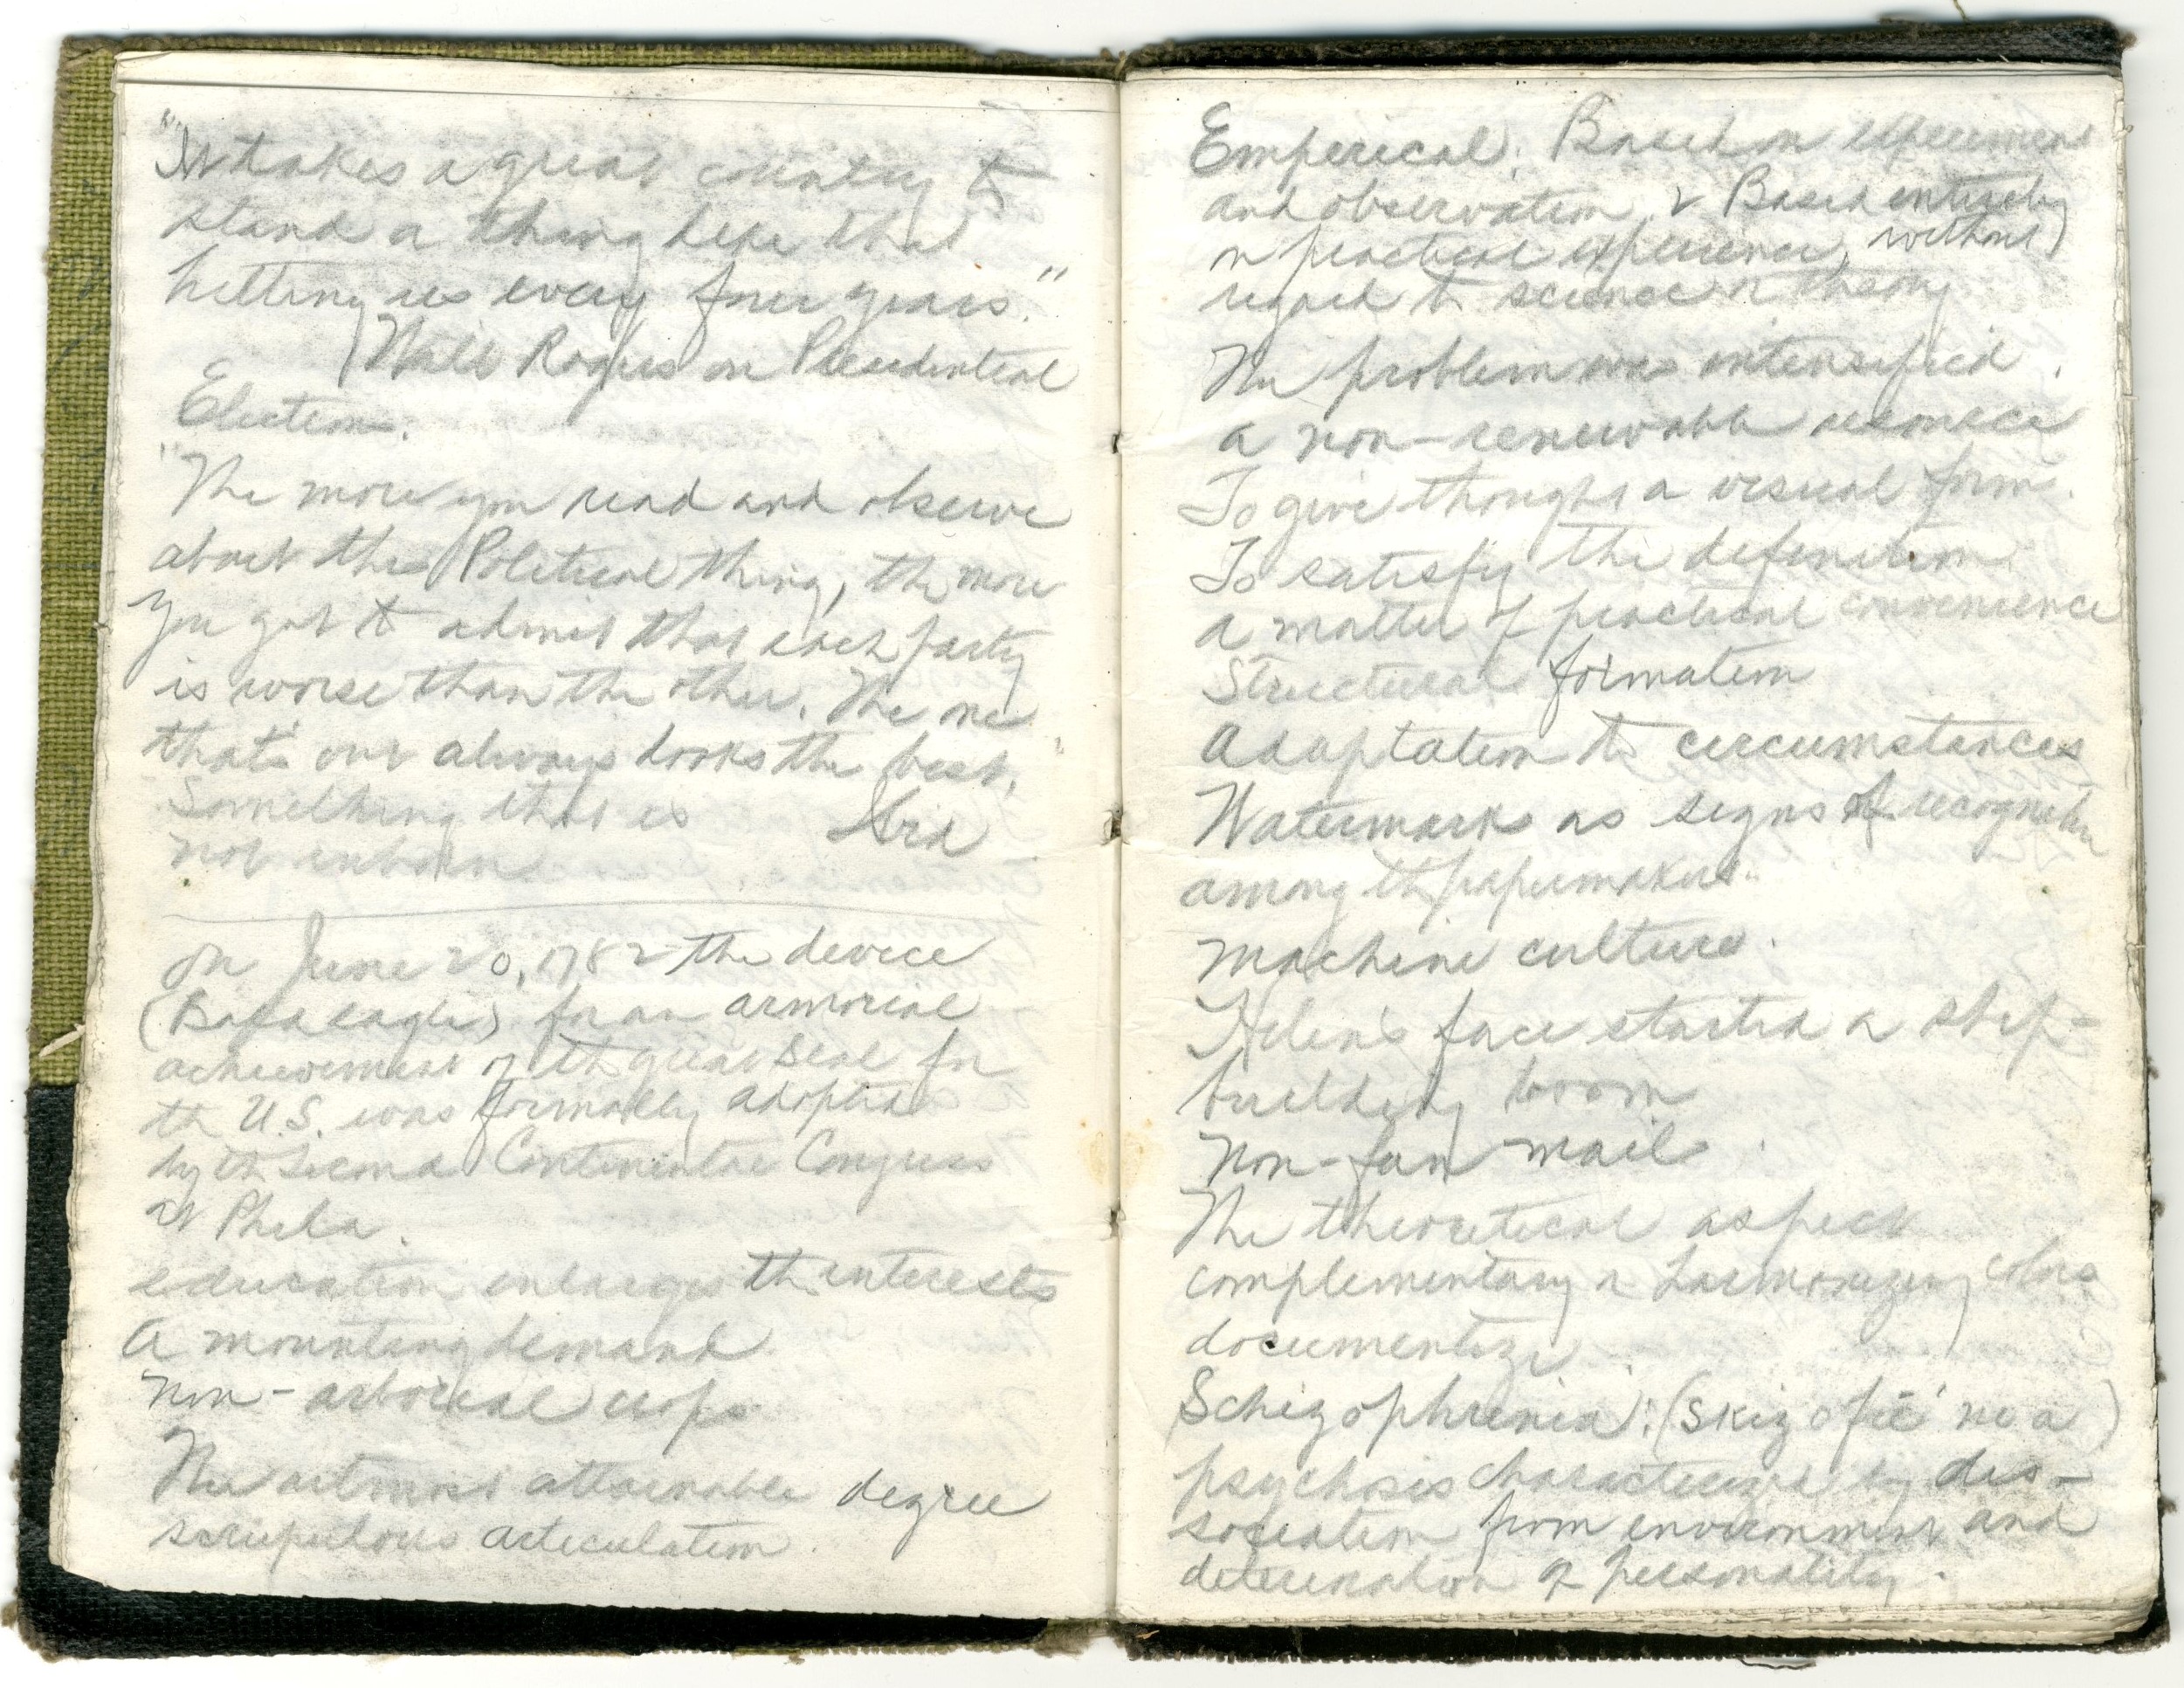 "It takes a great country to
stand a thing like that
hitting us every four years."
Will Rogers on Presidential
Election.
"The more you read and observe
about this Political thing, the more
you got to admit that each party
is worse than the other. The one
that's out always looks the best."
Something that is Ibid
not inborn
On June 20, 1782 the device
(Bald eagle) for an armorial
achievement of the great seal for
the U.S. was formally adopted
by the Second Continental Congress
at Phila.
education enlarges the interests
A mounting demand
Non-arboreal crops
The utmost attainable degree
scrupulous articulation.
Emperical: Based on experiment
and observation 2 Based entirely
on practical experience, without
regard to science or theory
The problem was intensified.
a non-renewable resource
To give thought a visual form.
To satisfy the definition
a matter of practical convenience
Structural formation
Adaptation to circumstances
Watermarks as signs of recognition
among the papermakers.
Machine culture.
Helen's face started a ship-
building boom
Non-fan mail.
The theoretical aspect
complementary or harmonizing colors
documentize
Schizophrenia: (skiz o frē' ne a)
psychosis characterized by dis-
sociation from environment and
deterioration of personality.